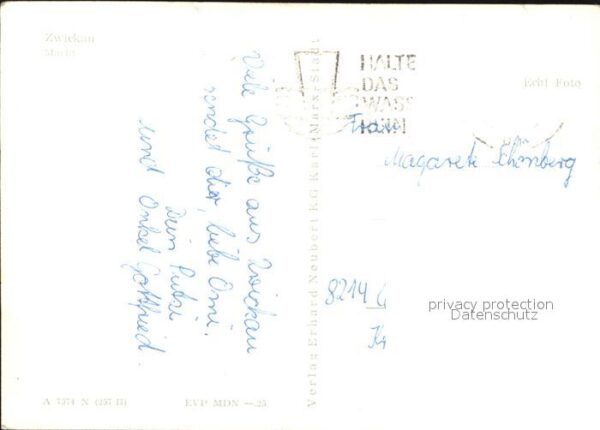 Zwickau
Markt
Viele Grüße aus Zwickau
sendet dir, liebe Omi,
Dein Putzi
und Onkel Gottfried.
A 7374 N (257 II)
EVP MDN —.25
Verlag Erhard Neubert KG Karl-Marx-Stadt
HALTE
DAS
WASS
Echt Foto
Frau
Magarete Schönberg
8214
privacy protection
Datenschutz